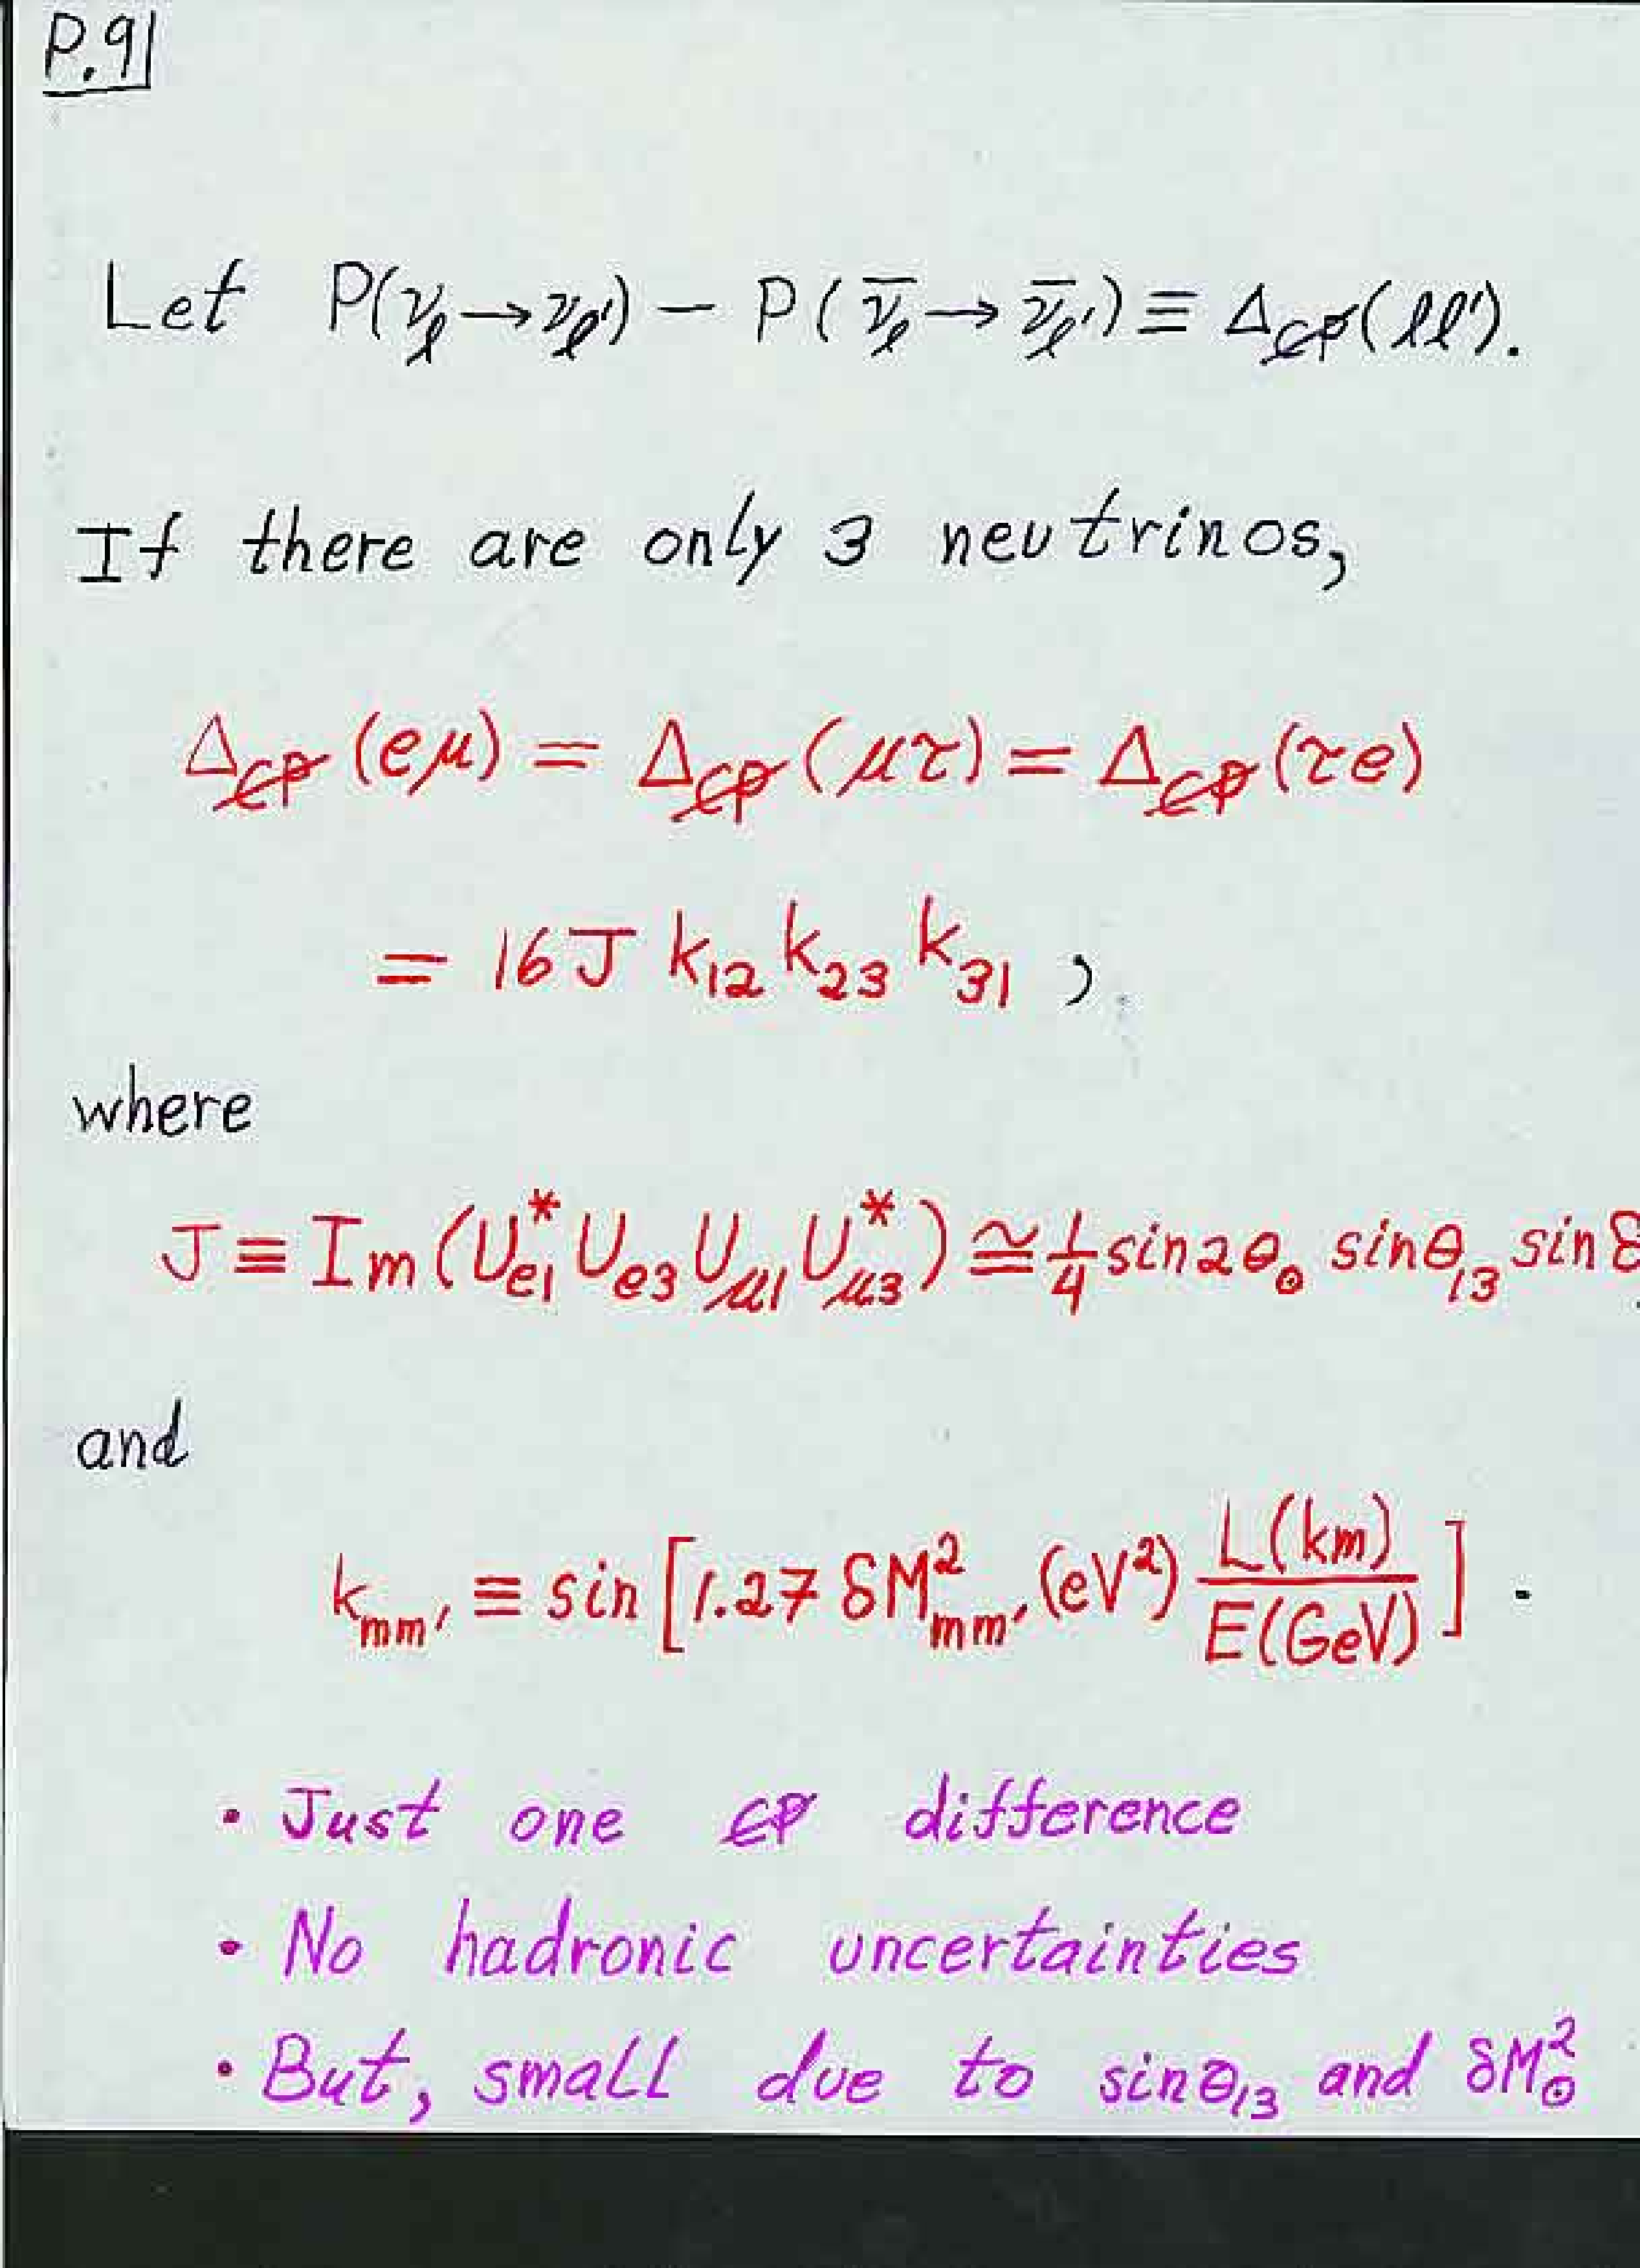 P.91
Let P(ν_ℓ→ν_ℓ′) − P(ν̄_ℓ→ν̄_ℓ′) ≡ Δ_C̸P̸(ℓℓ′).
If there are only 3 neutrinos,
Δ_C̸P̸(eμ) = Δ_C̸P̸(μτ) = Δ_C̸P̸(τe)
= 16 J k₁₂ k₂₃ k₃₁ ,
where
J ≡ Im(U*_e1 U_e3 U_μ1 U*_μ3) ≅ 1/4 sin2θ_⊙ sinθ₁₃ sinδ
and
k_mm′ ≡ sin[1.27 δM²_mm′ (eV²) L(km)/E(GeV)] .
• Just one C̸P̸ difference
• No hadronic uncertainties
• But, small due to sinθ₁₃ and δM²_⊙